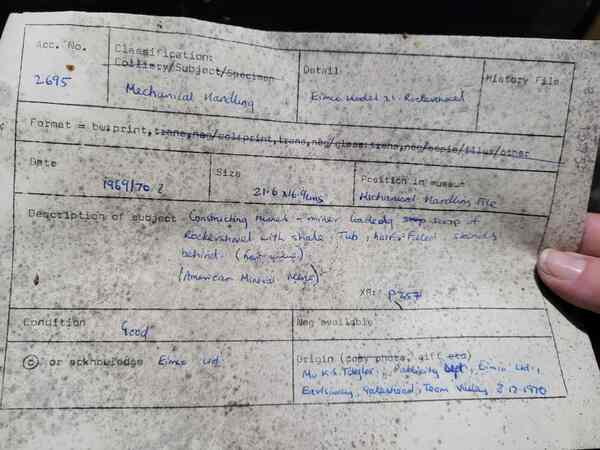 Acc. No.
2695
Classification:
Colliery/Subject/Specimen
Mechanical Handling
Detail
Eimco Model 21 Rockershovel
History File
Format = bw:print,trans,neg/col:print,trans,neg/glass:trans,neg/copie/illus/other
Date
1969/70 ?
Size
21.6 x 16.9cms
Position in museum
Mechanical Handling File
Description of subject - Constructing tunnel - miner loading scoop of
Rockershovel with shale. Tub, half filled stands
behind.
(American Mineral
XR:- P257
Condition Good
Neg available
© or acknowledge Eimco Ltd.
Origin (copy photo, gift etc)
Mr K.S. Taylor, Publicity Dept, Eimco Ltd.,
Earlsway, Gateshead, Team Valley 2-12-1970